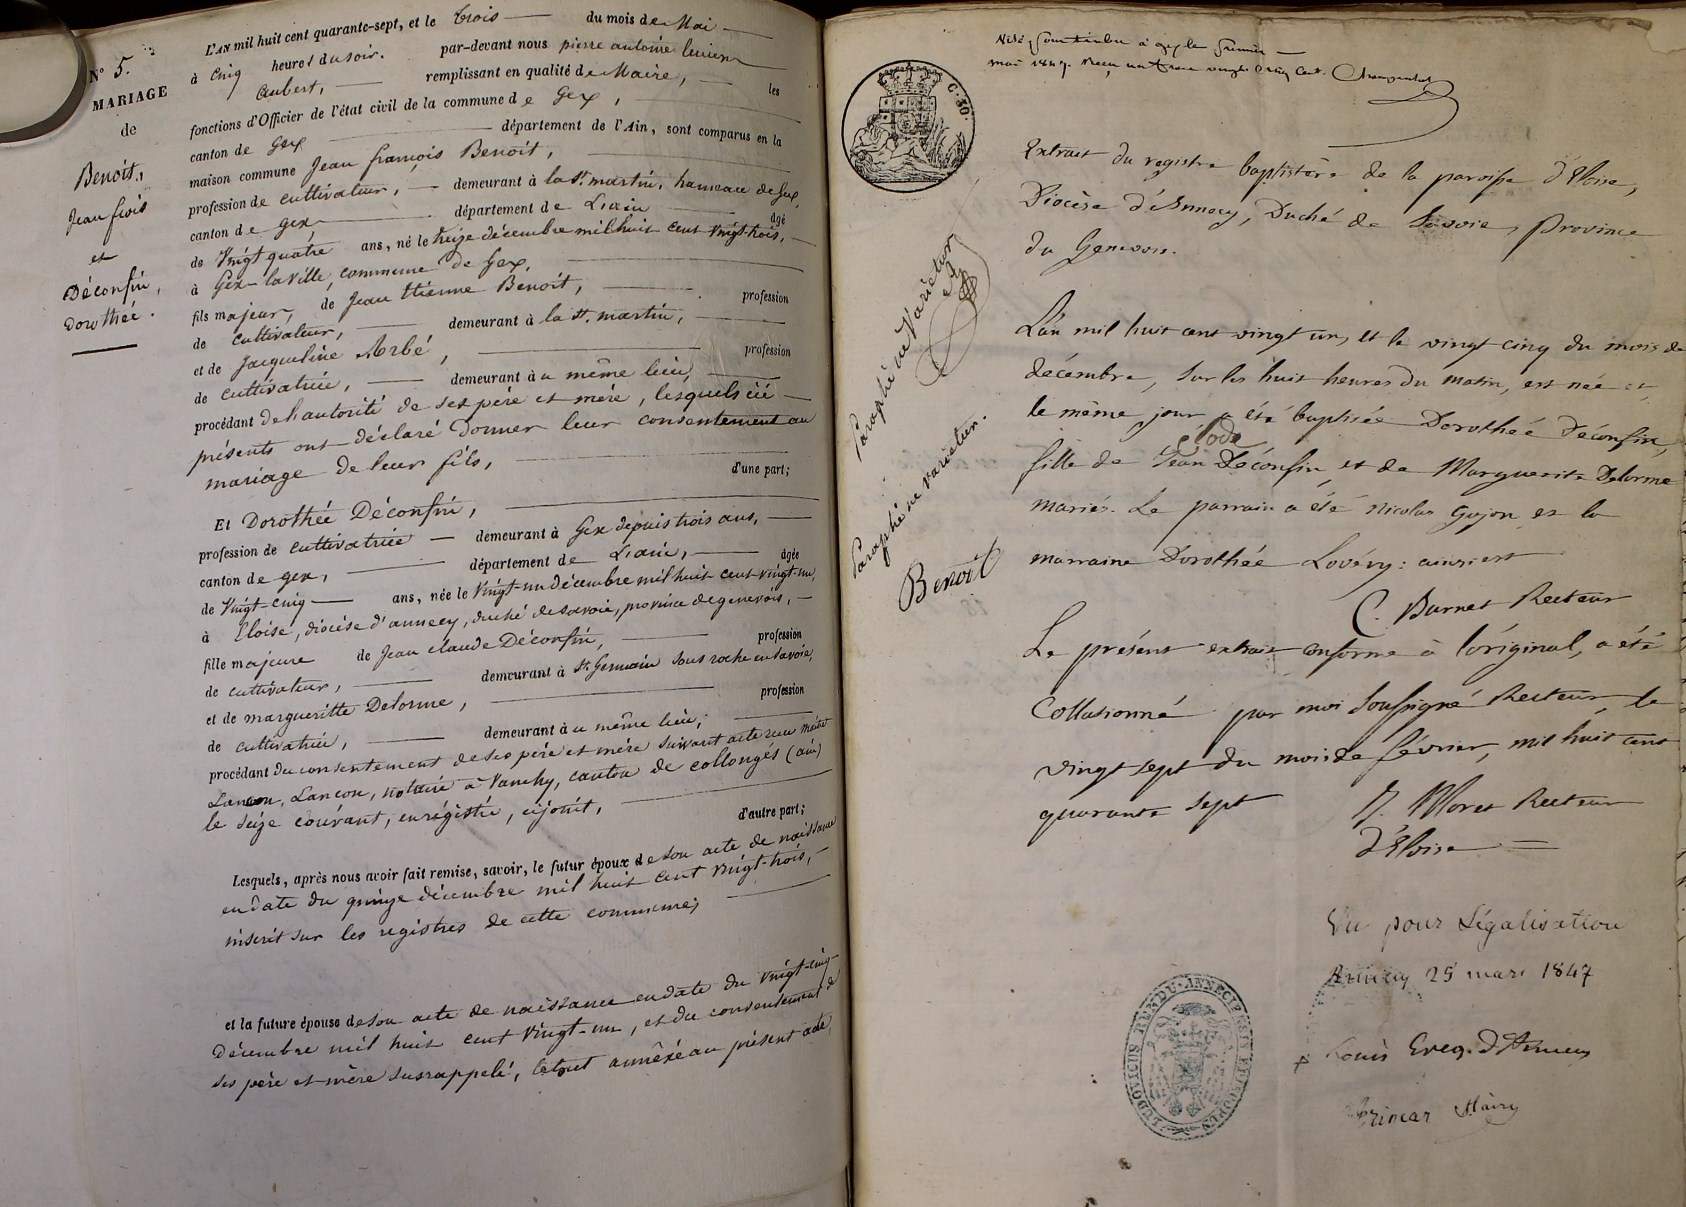 N° 5.
MARIAGE
de
Benoit,
Jean frois
et
Déconfin,
Dorothée.
L'AN mil huit cent quarante-sept, et le trois du mois de Mai
à Cinq heures du soir. par-devant nous pierre antoine lucien
Aubert, remplissant en qualité de Maire, les
fonctions d'Officier de l'état civil de la commune de Gex,
canton de Gex département de l'Ain, sont comparus en la
maison commune Jean françois Benoit,
profession de cultivateur, demeurant à la St. martin, hameau de Gex,
canton de gex, département de L'ain âgé
de Vingt quatre ans, né le treize décembre mil huit cent vingt-trois,
à Gex-la Ville, commune de Gex,
fils majeur, de Jean Etienne Benoit, profession
de cultivateur, demeurant à la St. martin,
et de Jacqueline Arbé, profession
de cultivatrice, demeurant à u même lieu,
procédant de l'autorité de ses père et mère, lesquels ici
présents ont déclaré donner leur consentement au
mariage de leur fils, d'une part;
Et Dorothée Déconfin,
profession de cultivatrice demeurant à Gex depuis trois ans,
canton de gex, département de L'ain, âgée
de Vingt-cinq ans, née le Vingt-un décembre mil huit cent vingt-un,
à Eloise, diocèse d'annecy, duché de savoie, province de genevois,
fille majeure de Jean claude Déconfin, profession
de cultivateur, demeurant à St. Germain sous roche en savoie,
et de margueritte Delorme, profession
de cultivatrice, demeurant à u même lieu;
procédant du consentement de ses père et mère suivant acte reçu maître
Lançon, notaire à Vanchy, canton de collonges (ain)
le seize courant, enrégistré, cijoint, d'autre part;
Lesquels, après nous avoir fait remise, savoir, le futur époux de son acte de naissance
en date du quinze décembre mil huit cent vingt-trois,
inscrit sur les registres de cette commune;
et la future épouse de son acte de naissance en date du vingt-cinq
décembre mil huit cent vingt-un, et du consentement de
ses père et mère susrappelé, le tout annéxé au présent acte,
Visé pour timbre à gex le premier
mai 1847. Reçu
C. 30.
Extrait du registre baptistère de la paroisse d'Eloise,
Diocèse d'Annecy, Duché de Savoie, Province
du Genevois.
L'an mil huit cent vingt un, et le vingt cinq du mois de
décembre, sur les huit heures du matin, est née et
le même jour a été baptisée Dorothée Déconfin,
Clode
fille de Jean Déconfin, et de Marguerite Delorme
mariés. Le parrain a été Nicolas Gojon et la
marraine Dorothée Lovéry: ainsi est
C. Burnet Recteur
Le présent extrait conforme à l'original, a été
Collationné par moi soussigné Recteur, le
vingt sept du mois de février, mil huit cent
quarante sept
J. Moret Recteur
d'Eloise
Paraphé ne Varietur
Paraphé ne varietur.
Benoit
Vu pour Légalisation
Annecy 25 mars 1847
+ Louis Eveq. d'Annecy
LUDOVICUS RENDU ANNECIENSIS EPISCOPUS